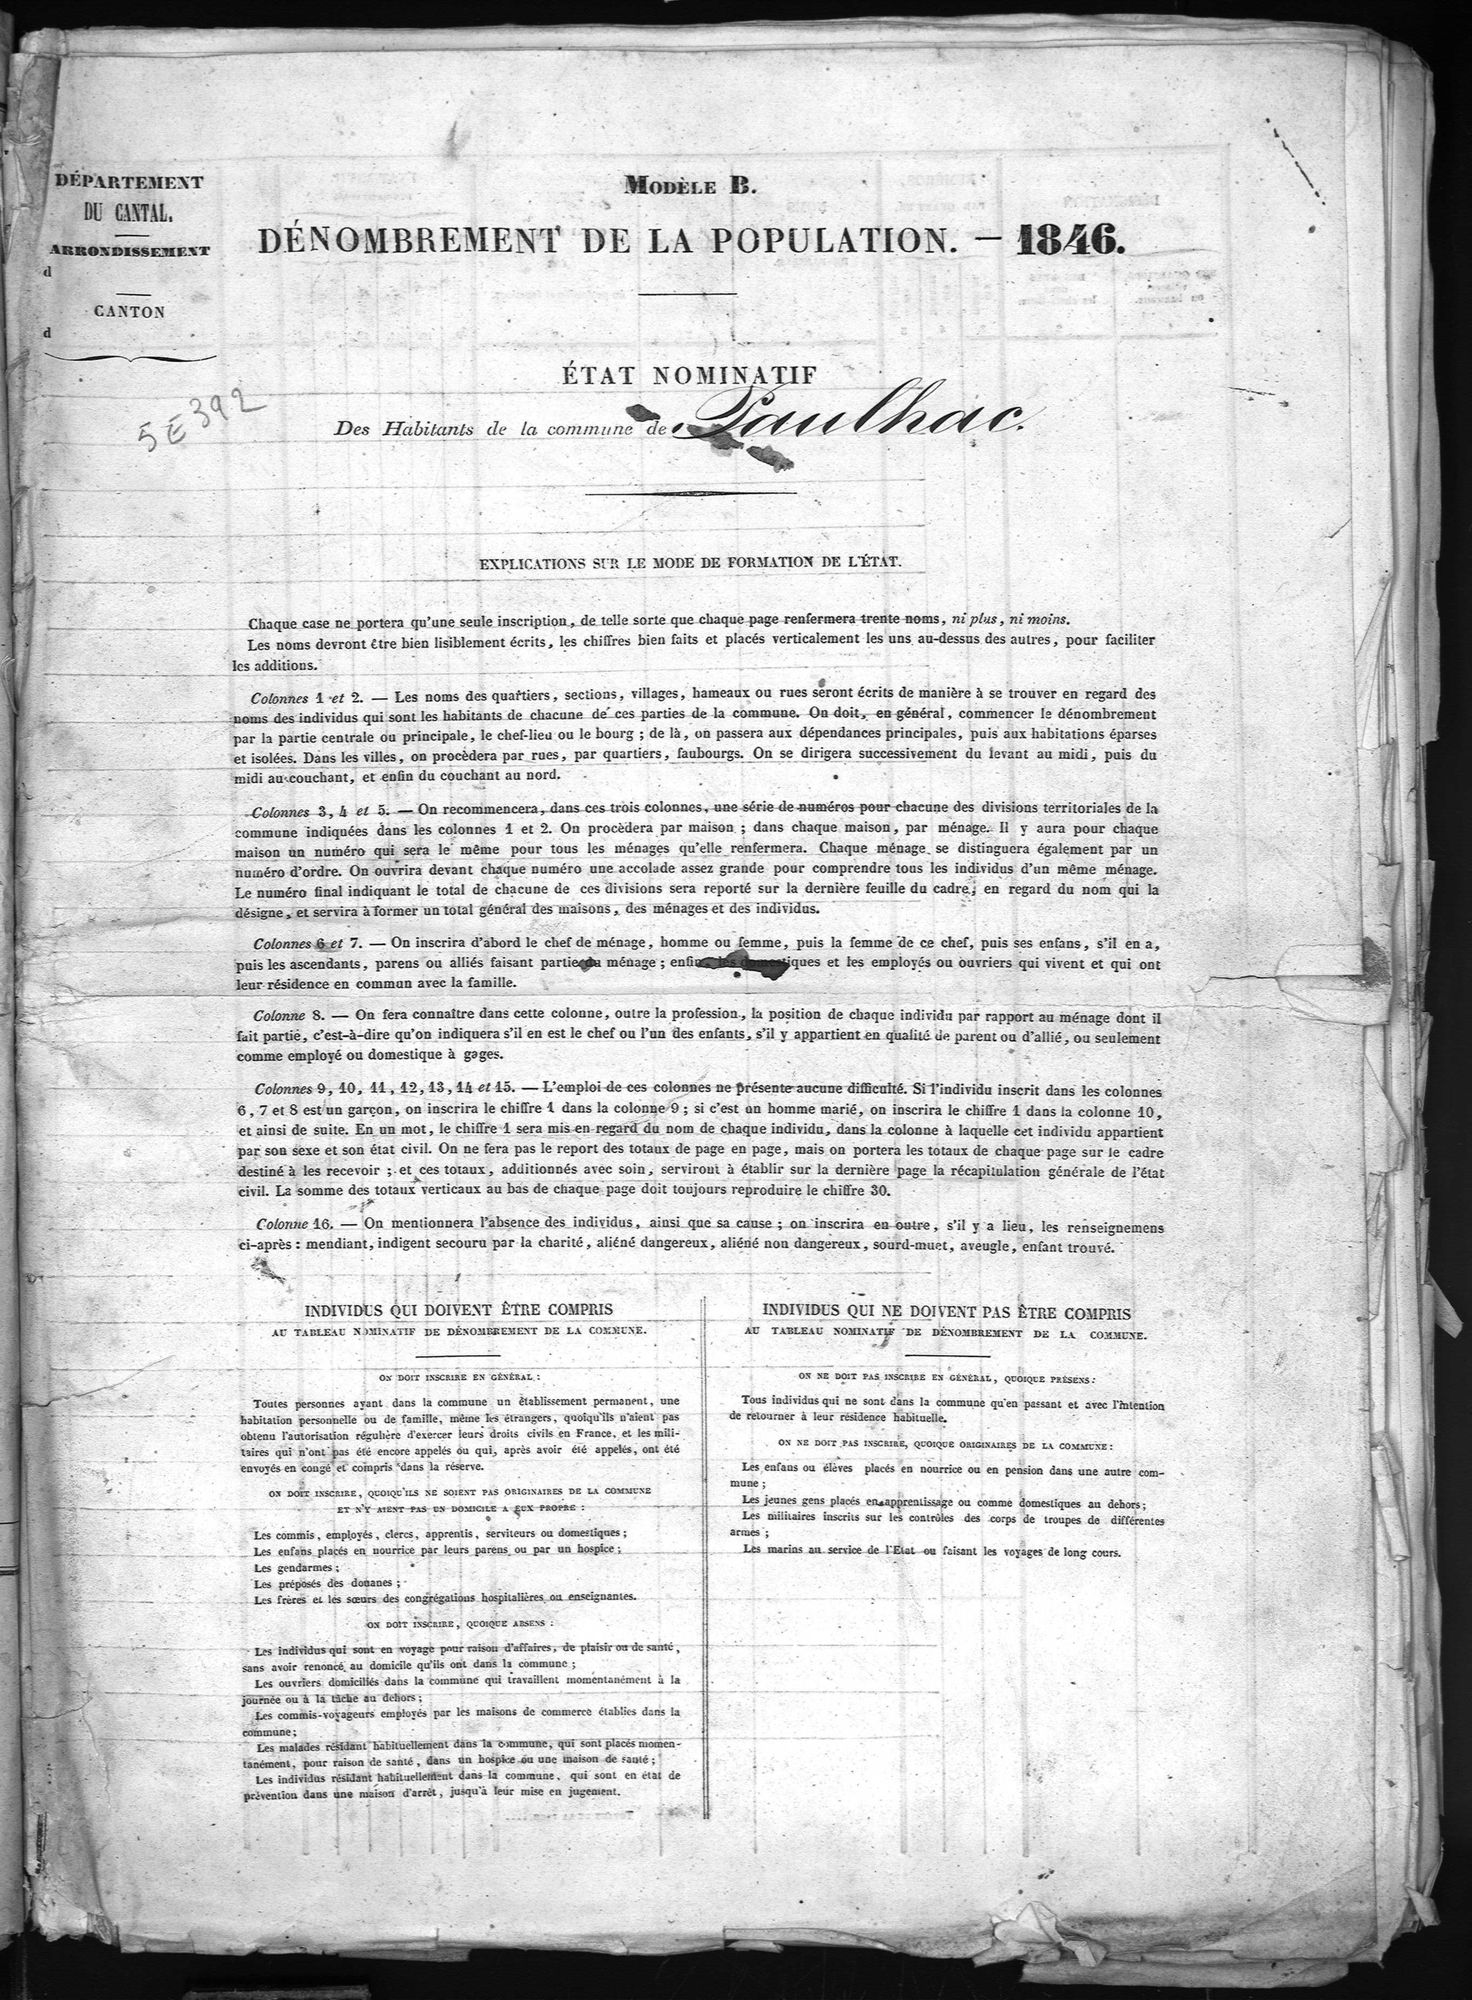 DÉPARTEMENT
DU CANTAL.
ARRONDISSEMENT
d
CANTON
d
5E392
MODÈLE B.
DÉNOMBREMENT DE LA POPULATION. — 1846.
ÉTAT NOMINATIF
Des Habitants de la commune de Paulhac.
EXPLICATIONS SUR LE MODE DE FORMATION DE L'ÉTAT.
Chaque case ne portera qu'une seule inscription, de telle sorte que chaque page renfermera trente noms, ni plus, ni moins.
Les noms devront être bien lisiblement écrits, les chiffres bien faits et placés verticalement les uns au-dessus des autres, pour faciliter
les additions.
Colonnes 1 et 2. — Les noms des quartiers, sections, villages, hameaux ou rues seront écrits de manière à se trouver en regard des
noms des individus qui sont les habitants de chacune de ces parties de la commune. On doit, en général, commencer le dénombrement
par la partie centrale ou principale, le chef-lieu ou le bourg ; de là, on passera aux dépendances principales, puis aux habitations éparses
et isolées. Dans les villes, on procèdera par rues, par quartiers, faubourgs. On se dirigera successivement du levant au midi, puis du
midi au couchant, et enfin du couchant au nord.
Colonnes 3, 4 et 5. — On recommencera, dans ces trois colonnes, une série de numéros pour chacune des divisions territoriales de la
commune indiquées dans les colonnes 1 et 2. On procèdera par maison ; dans chaque maison, par ménage. Il y aura pour chaque
maison un numéro qui sera le même pour tous les ménages qu'elle renfermera. Chaque ménage se distinguera également par un
numéro d'ordre. On ouvrira devant chaque numéro une accolade assez grande pour comprendre tous les individus d'un même ménage.
Le numéro final indiquant le total de chacune de ces divisions sera reporté sur la dernière feuille du cadre, en regard du nom qui la
désigne, et servira à former un total général des maisons, des ménages et des individus.
Colonnes 6 et 7. — On inscrira d'abord le chef de ménage, homme ou femme, puis la femme de ce chef, puis ses enfans, s'il en a,
puis les ascendants, parens ou alliés faisant partie du ménage ; enfin les domestiques et les employés ou ouvriers qui vivent et qui ont
leur résidence en commun avec la famille.
Colonne 8. — On fera connaître dans cette colonne, outre la profession, la position de chaque individu par rapport au ménage dont il
fait partie, c'est-à-dire qu'on indiquera s'il en est le chef ou l'un des enfants, s'il y appartient en qualité de parent ou d'allié, ou seulement
comme employé ou domestique à gages.
Colonnes 9, 10, 11, 12, 13, 14 et 15. — L'emploi de ces colonnes ne présente aucune difficulté. Si l'individu inscrit dans les colonnes
6, 7 et 8 est un garçon, on inscrira le chiffre 1 dans la colonne 9 ; si c'est un homme marié, on inscrira le chiffre 1 dans la colonne 10,
et ainsi de suite. En un mot, le chiffre 1 sera mis en regard du nom de chaque individu, dans la colonne à laquelle cet individu appartient
par son sexe et son état civil. On ne fera pas le report des totaux de page en page, mais on portera les totaux de chaque page sur le cadre
destiné à les recevoir ; et ces totaux, additionnés avec soin, serviront à établir sur la dernière page la récapitulation générale de l'état
civil. La somme des totaux verticaux au bas de chaque page doit toujours reproduire le chiffre 30.
Colonne 16. — On mentionnera l'absence des individus, ainsi que sa cause ; on inscrira en outre, s'il y a lieu, les renseignemens
ci-après : mendiant, indigent secouru par la charité, aliéné dangereux, aliéné non dangereux, sourd-muet, aveugle, enfant trouvé.
INDIVIDUS QUI DOIVENT ÊTRE COMPRIS
AU TABLEAU NOMINATIF DE DÉNOMBREMENT DE LA COMMUNE.
ON DOIT INSCRIRE EN GÉNÉRAL :
Toutes personnes ayant dans la commune un établissement permanent, une
habitation personnelle ou de famille, même les étrangers, quoiqu'ils n'aient pas
obtenu l'autorisation régulière d'exercer leurs droits civils en France, et les mili-
taires qui n'ont pas été encore appelés ou qui, après avoir été appelés, ont été
envoyés en congé et compris dans la réserve.
ON DOIT INSCRIRE, QUOIQU'ILS NE SOIENT PAS ORIGINAIRES DE LA COMMUNE
ET N'Y AIENT PAS UN DOMICILE A EUX PROPRE :
Les commis, employés, clercs, apprentis, serviteurs ou domestiques ;
Les enfans placés en nourrice par leurs parens ou par un hospice ;
Les gendarmes ;
Les préposés des douanes ;
Les frères et les sœurs des congrégations hospitalières ou enseignantes.
ON DOIT INSCRIRE, QUOIQUE ABSENS :
Les individus qui sont en voyage pour raison d'affaires, de plaisir ou de santé,
sans avoir renoncé au domicile qu'ils ont dans la commune ;
Les ouvriers domiciliés dans la commune qui travaillent momentanément à la
journée ou à la tâche au dehors ;
Les commis-voyageurs employés par les maisons de commerce établies dans la
commune ;
Les malades résidant habituellement dans la commune, qui sont placés momen-
tanément, pour raison de santé, dans un hospice ou une maison de santé ;
Les individus résidant habituellement dans la commune, qui sont en état de
prévention dans une maison d'arrêt, jusqu'à leur mise en jugement.
INDIVIDUS QUI NE DOIVENT PAS ÊTRE COMPRIS
AU TABLEAU NOMINATIF DE DÉNOMBREMENT DE LA COMMUNE.
ON NE DOIT PAS INSCRIRE EN GÉNÉRAL, QUOIQUE PRÉSENS :
Tous individus qui ne sont dans la commune qu'en passant et avec l'intention
de retourner à leur résidence habituelle.
ON NE DOIT PAS INSCRIRE, QUOIQUE ORIGINAIRES DE LA COMMUNE :
Les enfans ou élèves placés en nourrice ou en pension dans une autre com-
mune ;
Les jeunes gens placés en apprentissage ou comme domestiques au dehors ;
Les militaires inscrits sur les contrôles des corps de troupes de différentes
armes ;
Les marins au service de l'Etat ou faisant les voyages de long cours.